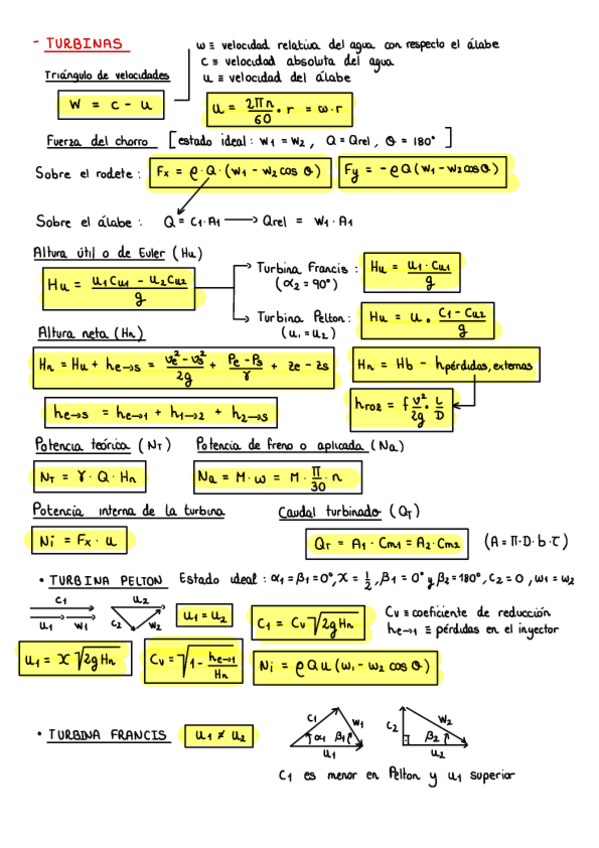 - TURBINAS
w ≡ velocidad relativa del agua con respecto el álabe
c ≡ velocidad absoluta del agua
u ≡ velocidad del álabe
Triángulo de velocidades
W = c - u
u = 2πn/60 · r = ω·r
Fuerza del chorro [estado ideal: w1 = w2, Q = Qrel, θ = 180°]
Sobre el rodete: Fx = ρ·Q·(w1 - w2 cos θ) Fy = -ρQ(w1 - w2 cos θ)
Sobre el álabe: Q = c1·A1 → Qrel = w1·A1
Altura útil o de Euler (Hu)
Hu = (u1Cu1 - u2Cu2)/g
Turbina Francis: (α2 = 90°) Hu = u1·Cu1/g
Turbina Pelton: (u1 = u2) Hu = u · (C1 - Cu2)/g
Altura neta (Hn)
Hn = Hu + he→s = (ve² - vs²)/2g + (Pe - Ps)/γ + ze - zs
Hn = Hb - hpérdidas, externas
he→s = he→1 + h1→2 + h2→s
hro2 = f v²/2g · L/D
Potencia teórica (NT) Potencia de freno o aplicada (Na)
NT = γ · Q · Hn Na = M·ω = M · π/30 · n
Potencia interna de la turbina Caudal turbinado (QT)
Ni = Fx · u QT = A1 · Cm1 = A2 · Cm2 (A = π·D·b·τ)
• TURBINA PELTON Estado ideal: α1 = β1 = 0°, x = 1/2, β1 = 0° y β2 = 180°, c2 = 0, w1 = w2
c1 u1 w1
u2 c2 w2
u1 = u2
C1 = Cv √2gHn
Cv ≡ coeficiente de reducción
he→1 ≡ pérdidas en el inyector
u1 = x √2gHn Cv = √(1 - he→1/Hn) Ni = ρQu(w1 - w2 cos θ)
• TURBINA FRANCIS u1 ≠ u2
c1 w1 α1 β1 u1
c2 w2 β2 u2
C1 es menor en Pelton y u1 superior